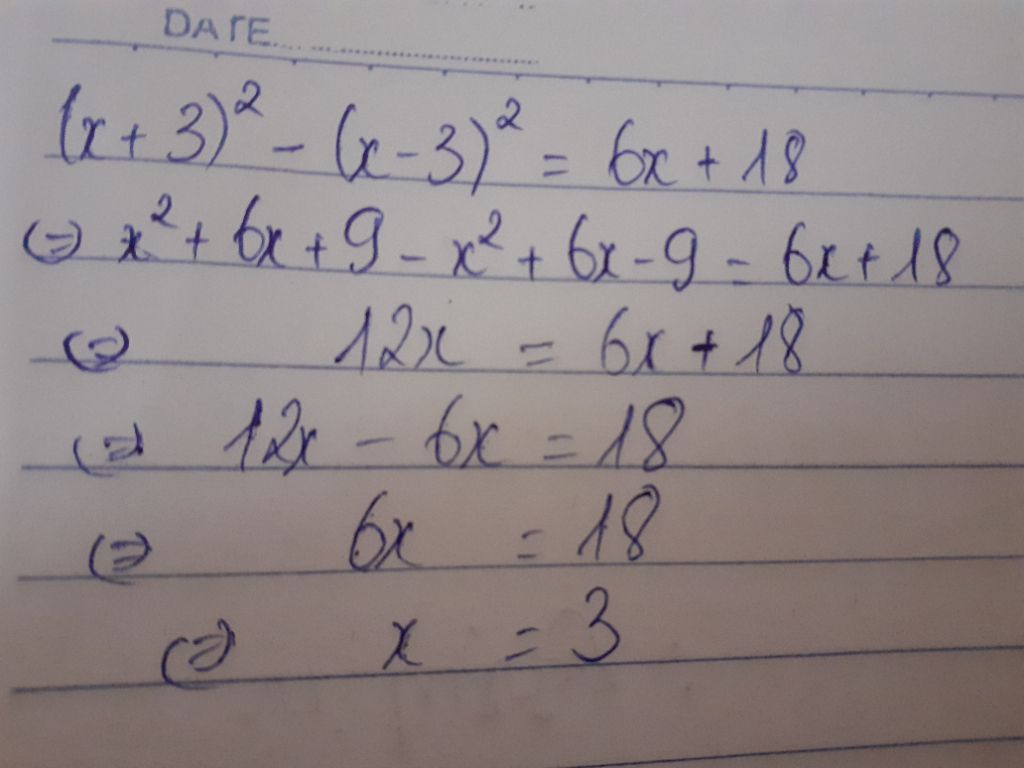 DATE
(x + 3)² - (x - 3)² = 6x + 18
⇔ x² + 6x + 9 - x² + 6x - 9 = 6x + 18
⇔ 12x = 6x + 18
⇔ 12x - 6x = 18
⇔ 6x = 18
⇔ x = 3